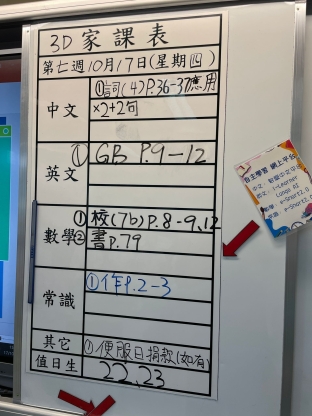 3D家課表
第七週10月17日(星期四)
中文
①詞(4)P.36-37應用
×2+2句
英文
①GB P.9-12
數學
①校(7b)P.8-9,12
②書P.79
常識
①作P.2-3
其它
①便服日捐款(如有)
值日生
22,23
自主學習 網上平台
i-Learner